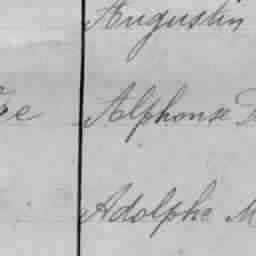 Augustin
Alphonse
Adolphe M